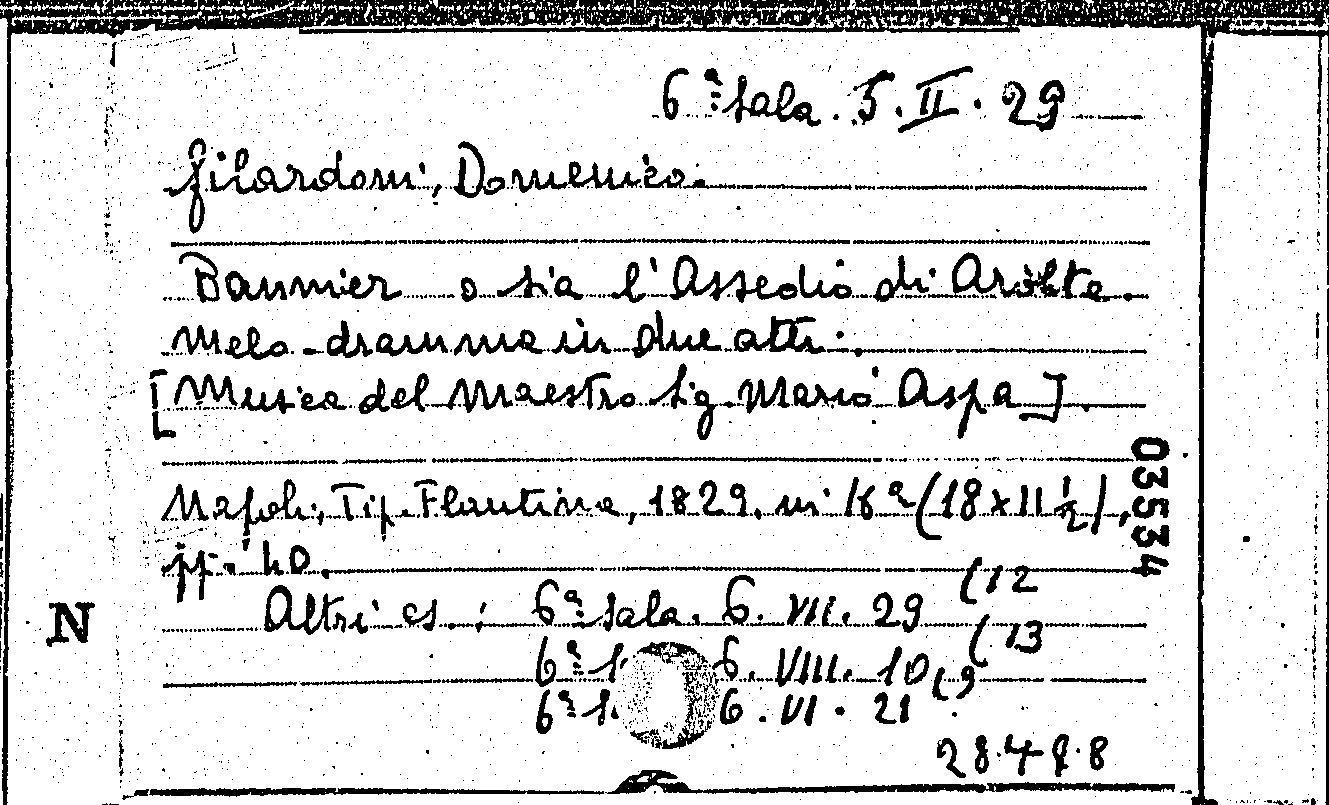 6ª Sala. 5. II. 29
Gilardoni, Domenico.
Bannier o sia l'Assedio di Arolte.
Melo-dramma in due atti.
[Musica del Maestro Sig. Mario Aspa].
Napoli, Tip. Flautina, 1829. in 16ª (18 x 11 ½),
pp. 40.
03534
Altri es.: 6ª Sala. 6. VII. 29 (12
N
6ª S. 6. VIII. 10 (13
6ª S. 6. VI. 21 (9